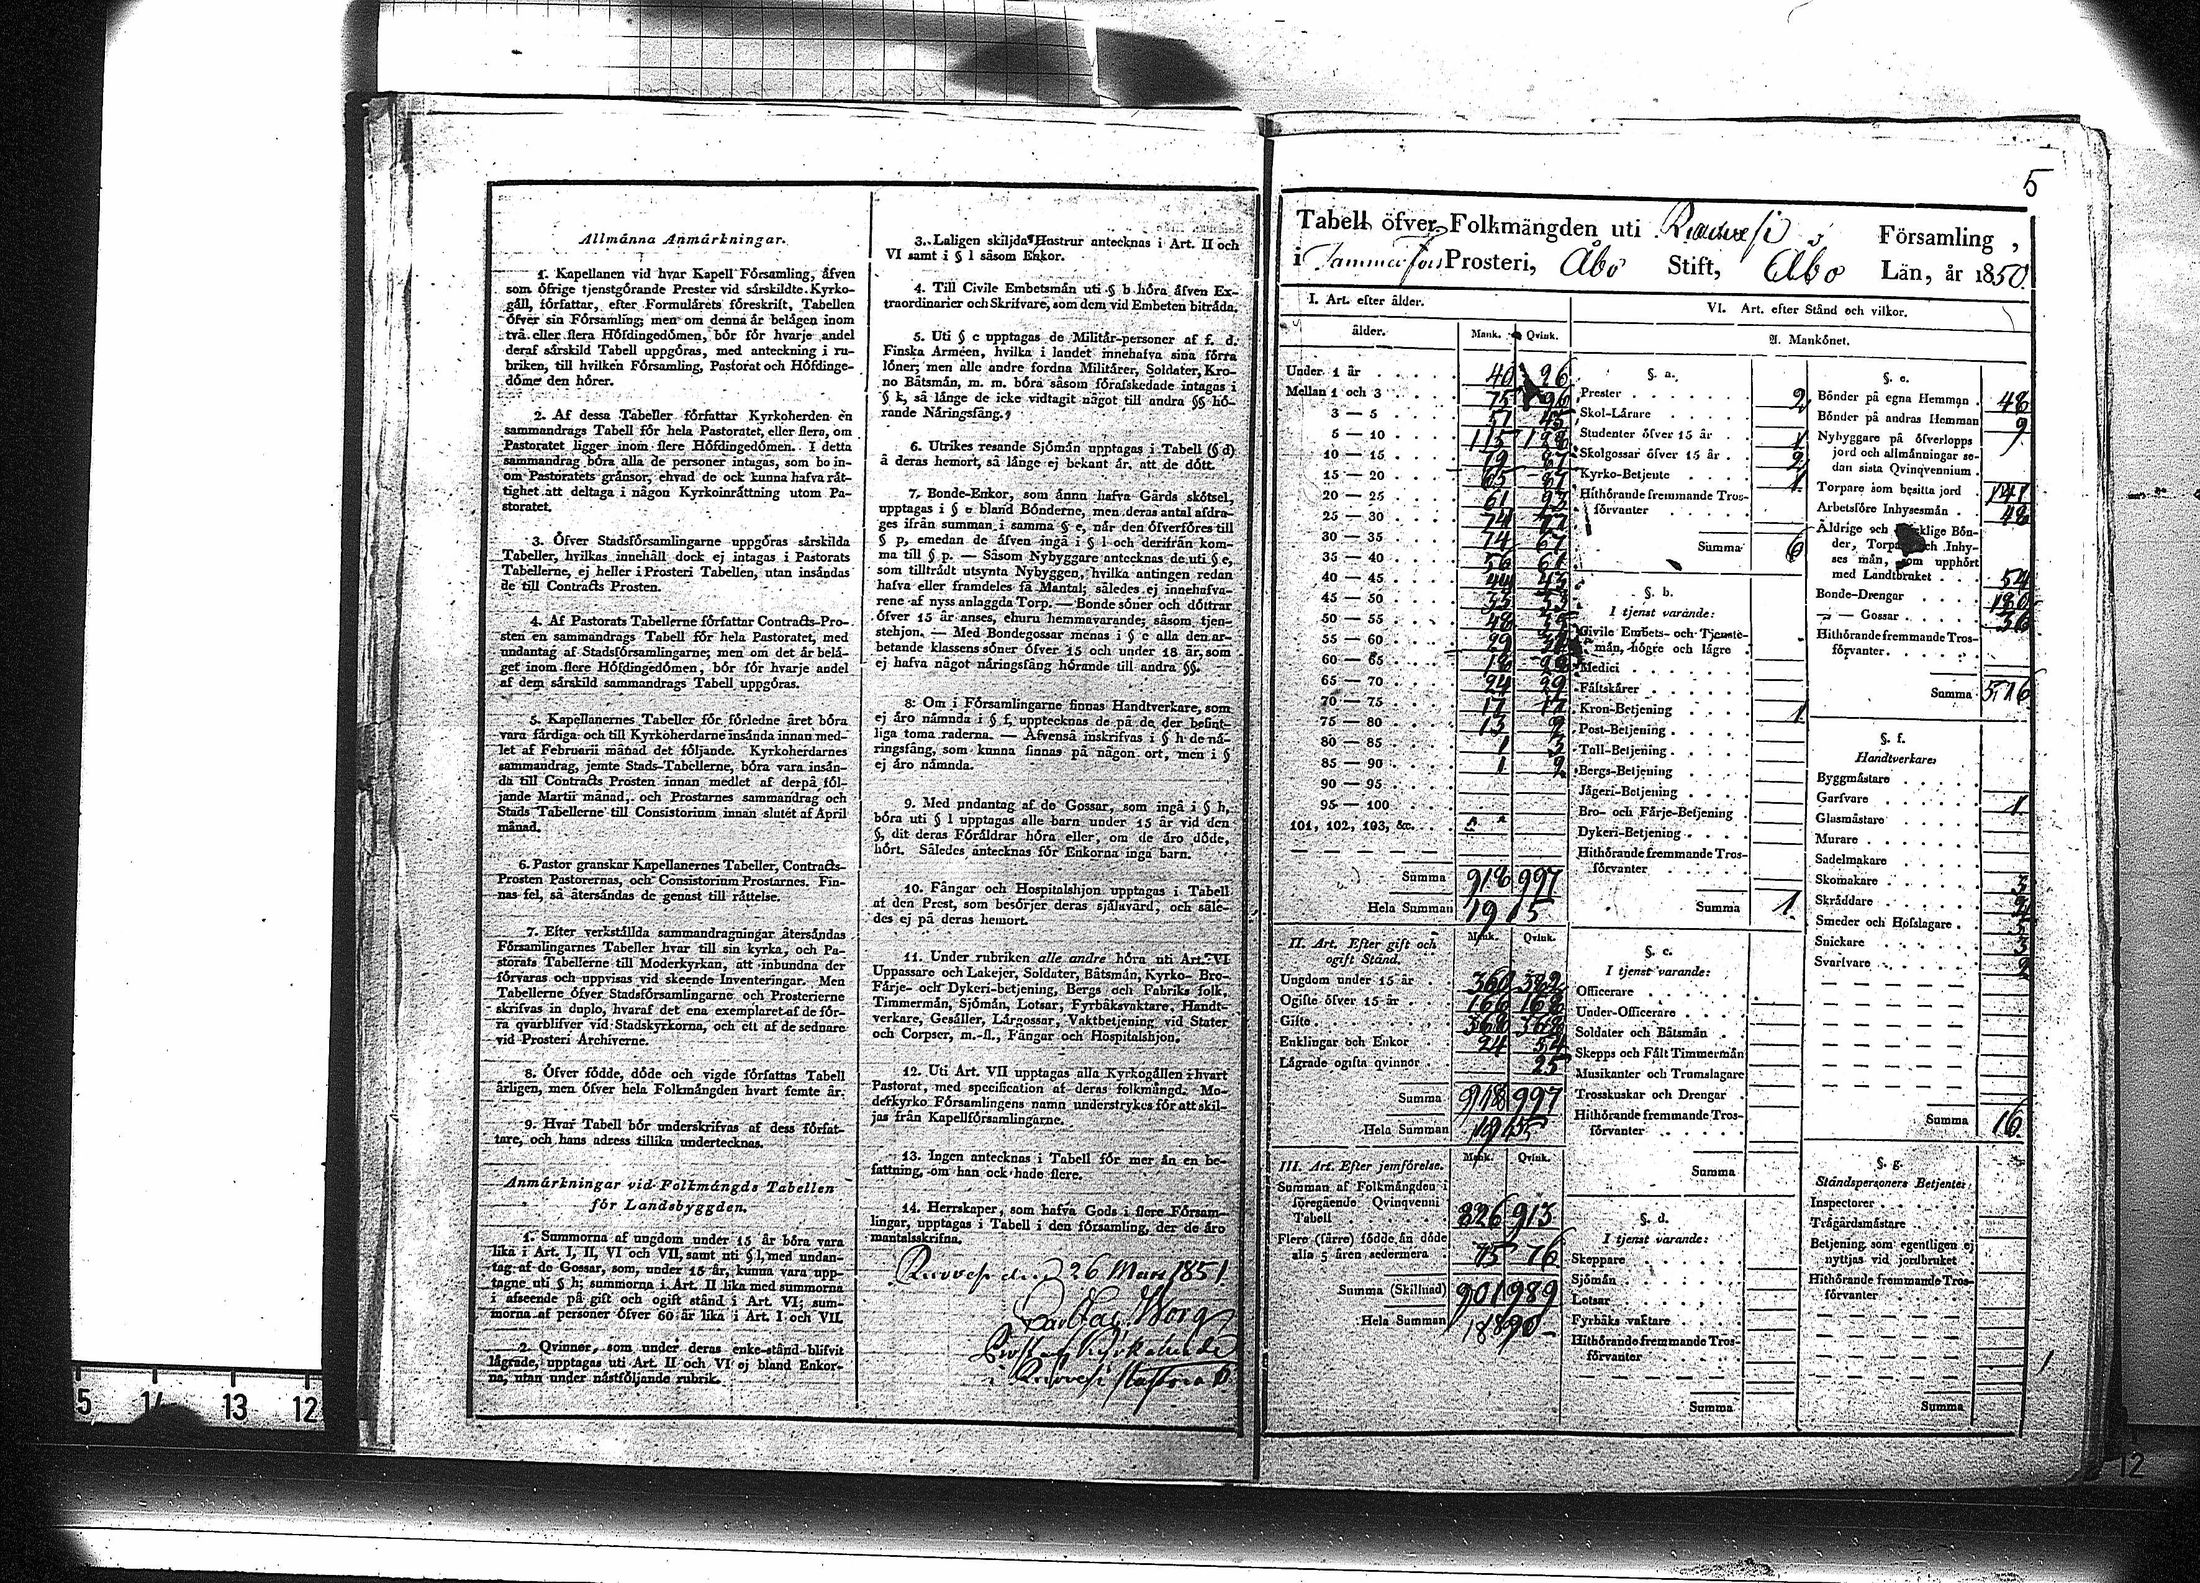 Allmänna Anmärkningar.
1. Kapellanen vid hvar Kapell Församling, äfven
som öfrige tjenstgörande Prester vid särskildte Kyrko-
gäll, författar, efter Formulärets föreskrift, Tabellen
öfver sin Församling; men om denna är belägen inom
två eller flera Höfdingedömen, bör för hvarje andel
deraf särskild Tabell uppgöras, med anteckning i ru-
briken, till hvilken Församling, Pastorat och Höfdinge-
döme den hörer.
2. Af dessa Tabeller författar Kyrkoherden en
sammandrags Tabell för hela Pastoratet, eller flera, om
Pastoratet ligger inom flere Höfdingedömen. I detta
sammandrag böra alla de personer intagas, som bo in-
om Pastoratets gränsor, ehvad de ock kunna hafva rät-
tighet att deltaga i någon Kyrkoinrättning utom Pa-
storatet.
3. Öfver Stadsförsamlingarne uppgöras särskilda
Tabeller, hvilkas innehåll dock ej intagas i Pastorats
Tabellerne, ej heller i Prosteri Tabellen, utan insändas
de till Contracts Prosten.
4. Af Pastorats Tabellerne författar Contracts-Pro-
sten en sammandrags Tabell för hela Pastoratet, med
undantag af Stadsförsamlingarne; men om det är belä-
get inom flere Höfdingedömen, bör för hvarje andel
af dem särskild sammandrags Tabell uppgöras.
5. Kapellanernes Tabeller för förledne året böra
vara färdiga och till Kyrkoherdarne insända innan med-
let af Februarii månad det följande. Kyrkoherdarnes
sammandrag, jemte Stads-Tabellerne, böra vara insän-
da till Contracts Prosten innan medlet af derpå föl-
jande Martii månad, och Prostarnes sammandrag och
Stads Tabellerne till Consistorium innan slutet af April
månad.
6. Pastor granskar Kapellanernes Tabeller, Contracts-
Prosten Pastorernas, och Consistorium Prostarnes. Fin-
nas fel, så återsändas de genast till rättelse.
7. Efter verkställda sammandragningar återsändas
Församlingarnes Tabeller hvar till sin kyrka, och Pa-
storats Tabellerne till Moderkyrkan, att inbundna der
förvaras och uppvisas vid skeende Inventeringar. Men
Tabellerne öfver Stadsförsamlingarne och Prosterierne
skrifvas in duplo, hvaraf det ena exemplaret af de för-
ra qvarblifver vid Stadskyrkorna, och ett af de sednare
vid Prosteri Archiverne.
8. Öfver födde, döde och vigde författas Tabell
årligen, men öfver hela Folkmängden hvart femte år.
9. Hvar Tabell bör underskrifvas af dess förfat-
tare, och hans adress tillika undertecknas.
Anmärkningar vid Folkmängds Tabellen
för Landsbyggden.
1. Summorna af ungdom under 15 år böra vara
lika i Art. I, II, VI och VII, samt uti § l, med undan-
tag af de Gossar, som, under 15 år, kunna vara upp-
tagne uti § h; summorna i Art. II lika med summorna
i afseende på gift och ogift stånd i Art. VI; sum-
morna af personer öfver 60 år lika i Art. I och VII.
2. Qvinnor, som under deras enke-stånd blifvit
lägrade, upptagas uti Art. II och VI ej bland Enkor-
na, utan under nästföljande rubrik.
3. Laligen skiljda Hustrur antecknas i Art. II och
VI samt i § l såsom Enkor.
4. Till Civile Embetsmän uti § b höra äfven Ex-
traordinarier och Skrifvare, som dem vid Embeten biträda.
5. Uti § c upptagas de Militär-personer af f. d.
Finska Armeen, hvilka i landet innehafva sina förra
löner; men alle andre fordna Militärer, Soldater, Kro-
no Båtsmän, m. m. böra såsom förafskedade intagas i
§ k, så länge de icke vidtagit något till andra §§ hö-
rande Näringsfång.
6. Utrikes resande Sjömän upptagas i Tabell (§ d)
å deras hemort, så länge ej bekant är, att de dött.
7. Bonde-Enkor, som ännu hafva Gårds skötsel,
upptagas i § e bland Bönderne, men deras antal afdra-
ges ifrån summan i samma § e, när den öfverföres till
§ p, emedan de äfven ingå i § l och derifrån kom-
ma till § p. — Såsom Nybyggare antecknas de uti § e,
som tillträdt utsynta Nybyggen, hvilka antingen redan
hafva eller framdeles få Mantal; således ej innehafva-
rene af nyss anlaggda Torp. — Bonde söner och döttrar
öfver 15 år anses, ehuru hemmavarande, såsom tjen-
stehjon. — Med Bondegossar menas i § e alla den ar-
betande klassens söner öfver 15 och under 18 år, som
ej hafva något näringsfång hörande till andra §§.
8. Om i Församlingarne finnas Handtverkare, som
ej äro nämnda i § f, upptecknas de på de der befint-
liga toma raderna. — Äfvenså inskrifvas i § h de nä-
ringsfång, som kunna finnas på någon ort, men i §
ej äro nämnda.
9. Med undantag af de Gossar, som ingå i § h,
böra uti § l upptagas alle barn under 15 år vid den
§, dit deras Föräldrar höra eller, om de äro döde,
hört. Således antecknas för Enkorna inga barn.
10. Fångar och Hospitalshjon upptagas i Tabell
af den Prest, som besörjer deras själavård, och såle-
des ej på deras hemort.
11. Under rubriken alle andre höra uti Art. VI
Uppassare och Lakejer, Soldater, Båtsmän, Kyrko- Bro-
Färje- och Dykeri-betjening, Bergs och Fabriks folk,
Timmermän, Sjömän, Lotsar, Fyrbåksvaktare, Handt-
verkare, Gesäller, Lärgossar, Vaktbetjening vid Stater
och Corpser, m. fl., Fångar och Hospitalshjon.
12. Uti Art. VII upptagas alla Kyrkogällen i hvart
Pastorat, med specification af deras folkmängd. Mo-
derkyrko Församlingens namn understrykes för att skil-
jas från Kapellförsamlingarne.
13. Ingen antecknas i Tabell för mer än en be-
fattning, om han ock hade flere.
14. Herrskaper, som hafva Gods i flere Försam-
lingar, upptagas i Tabell i den församling, der de äro
mantalsskrifna.
Ruovesi den 26 Mars 1851.
5
Tabell öfver Folkmängden uti Ruovesi Församling,
i Tammerfors Prosteri, Åbo Stift, Åbo Län, år 1850
I. Art. efter ålder.
ålder. Mank. Qvink.
Under 1 år 40 26
Mellan 1 och 3 75 96
3 — 5 57 45
5 — 10 115 128
10 — 15
15 — 20 65 81
20 — 25 61 93
25 — 30 74 77
30 — 35 74 67
35 — 40 56 61
40 — 45 44 43
45 — 50
50 — 55
55 — 60
60 — 65 18 28
65 — 70 24 29
70 — 75 17 17
75 — 80 13 9
80 — 85 1 3
85 — 90 1 2
90 — 95
95 — 100
101, 102, 103, &c.
Summa 918 997
Hela Summan 1915
II. Art. Efter gift och
ogift Stånd.
Mank. Qvink.
Ungdom under 15 år 360 382
Ogifte öfver 15 år 166 168
Gifte 368 368
Enklingar och Enkor 24 54
Lägrade ogifta qvinnor 25
Summa 918 997
Hela Summan 1915
III. Art. Efter jemförelse.
Mank. Qvink.
Summan af Folkmängden i
föregående Qvinqvenni
Tabell 826 913
Flere (färre) födde än döde
alla 5 åren sedermera 75 76
Summa (Skillnad) 901 989
Hela Summan 1890
VI. Art. efter Stånd och vilkor.
A. Mankönet.
§. a.
Prester 2
Skol-Lärare
Studenter öfver 15 år 1
Skolgossar öfver 15 år 2
Kyrko-Betjente 1
Hithörande fremmande Tros-
förvanter
Summa 6
§. b.
I tjenst varande:
Civile Embets- och Tjenste-
män, högre och lägre
Medici
Fältskärer
Kron-Betjening 1
Post-Betjening
Tull-Betjening
Bergs-Betjening
Jägeri-Betjening
Bro- och Färje-Betjening
Dykeri-Betjening
Hithörande fremmande Tros-
förvanter
Summa 1
§. c.
I tjenst varande:
Officerare
Under-Officerare
Soldater och Båtsmän
Skepps och Fält Timmermän
Musikanter och Trumslagare
Trosskuskar och Drengar
Hithörande fremmande Tros-
förvanter
Summa
§. d.
I tjenst varande:
Skeppare
Sjömän
Lotsar
Fyrbåks vaktare
Hithörande fremmande Tros-
förvanter
Summa
§. e.
Bönder på egna Hemman 48
Bönder på andras Hemman 9
Nybyggare på öfverlopps
jord och allmänningar se-
dan sista Qvinqvennium
Torpare som besitta jord 141
Arbetsföre Inhysesmän 48
Åldrige och
der, Inhy-
ses män, som upphört
med Landtbruket 54
Bonde-Drengar 180
„ — Gossar 36
Hithörande fremmande Tros-
förvanter
Summa 516
§. f.
Handtverkare
Byggmästare
Garfvare 1
Glasmästare
Murare
Sadelmakare
Skomakare 3
Skräddare
Smeder och Hofslagare
Snickare 3
Svarfvare 2
Summa 16
§. g.
Ståndspersoners Betjenter:
Inspectorer
Trägårdsmästare
Betjening som egentligen ej
nyttjas vid jordbruket
Hithörande fremmande Tros-
förvanter
Summa
14 13 12
12